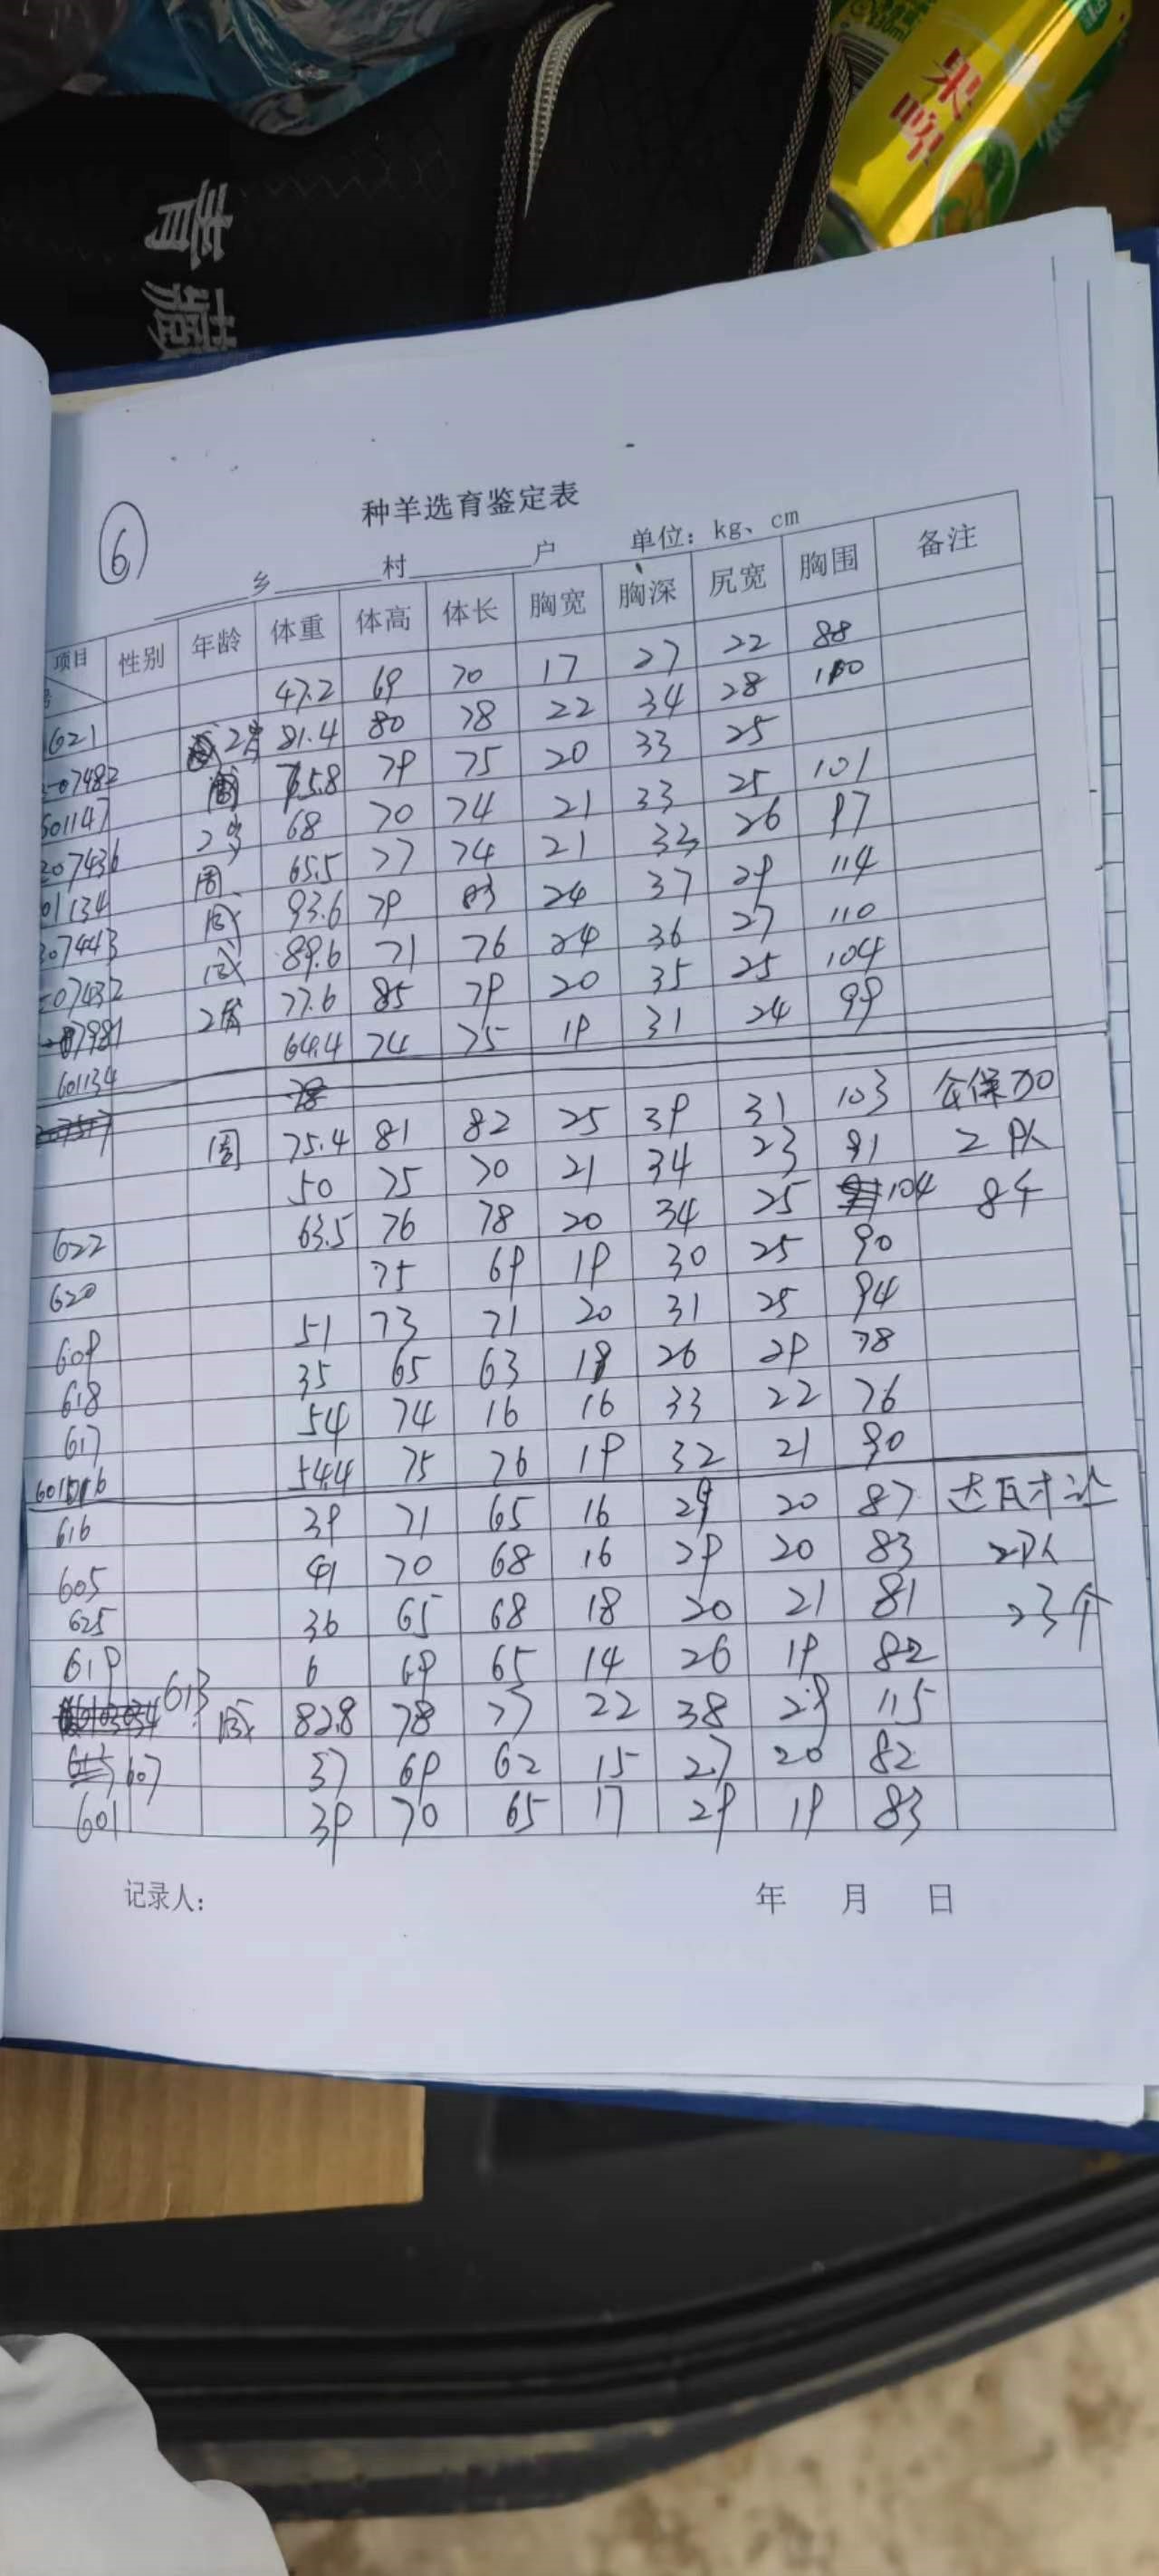 青藏
果啤
⑥
种羊选育鉴定表
乡 村 户 单位：kg、cm
项目 性别 年龄 体重 体高 体长 胸宽 胸深 尻宽 胸围 备注
号
621 47.2 69 70 17 27 22 88
07482 2岁 81.4 80 78 22 34 28 100
601147 周 79 75 20 33 25
207436 2岁 68 70 74 21 33 25 101
01134 周 65.5 77 74 21 33 26 97
207443 成 93.6 79 83 24 37 29 114
07432 成 89.6 71 76 24 36 27 110
7981 2岁 77.6 85 79 20 35 25 104
601134 64.4 74 75 19 31 24 99
周 75.4 81 82 25 39 31 103 仓保加
50 75 70 21 34 23 91 2队
622 63.5 76 78 20 34 25 104 8个
620 75 69 19 30 25 90
609 51 73 71 20 31 25 94
618 35 65 63 18 26 29 78
617 54 74 16 16 33 22 76
54.4 75 76 19 32 21 90
616 39 71 65 16 29 20 87 达瓦才让
605 41 70 68 16 29 20 83 2队
625 36 65 68 18 20 21 81 23个
619 6 69 65 14 26 19 82
613 成 82.8 78 77 22 38 29 115
607 37 69 62 15 27 20 82
601 39 70 65 17 29 19 83
记录人： 年 月 日